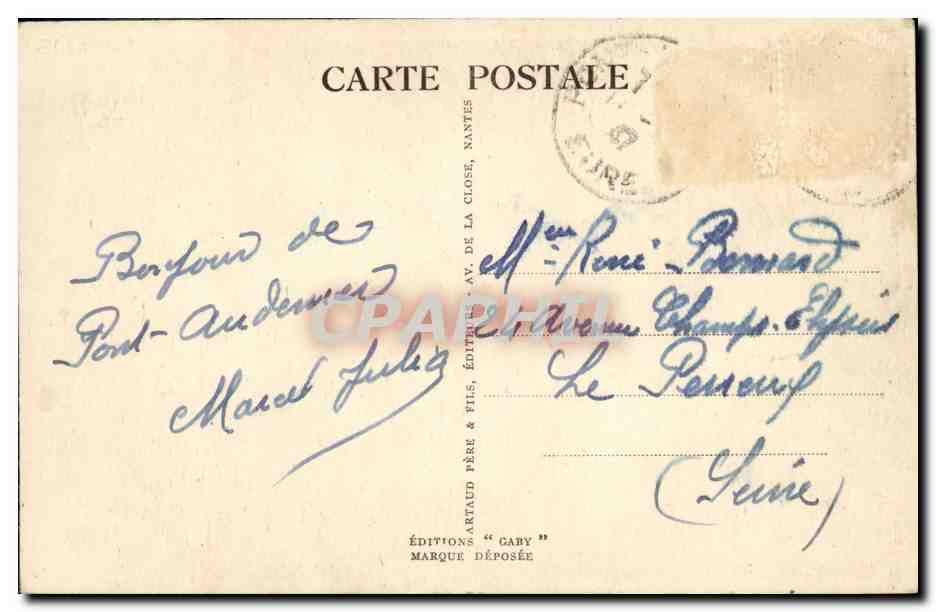 CARTE POSTALE
EURE
Bonjour de
Pont-Audemer
Marcel Julia
ARTAUD PÈRE & FILS, ÉDITEURS - AV. DE LA CLOSE, NANTES
Mme René Bernard
24 Avenue Champs-Elysées
Le Perreux
(Seine)
ÉDITIONS "GABY"
MARQUE DÉPOSÉE
CPAPHIL